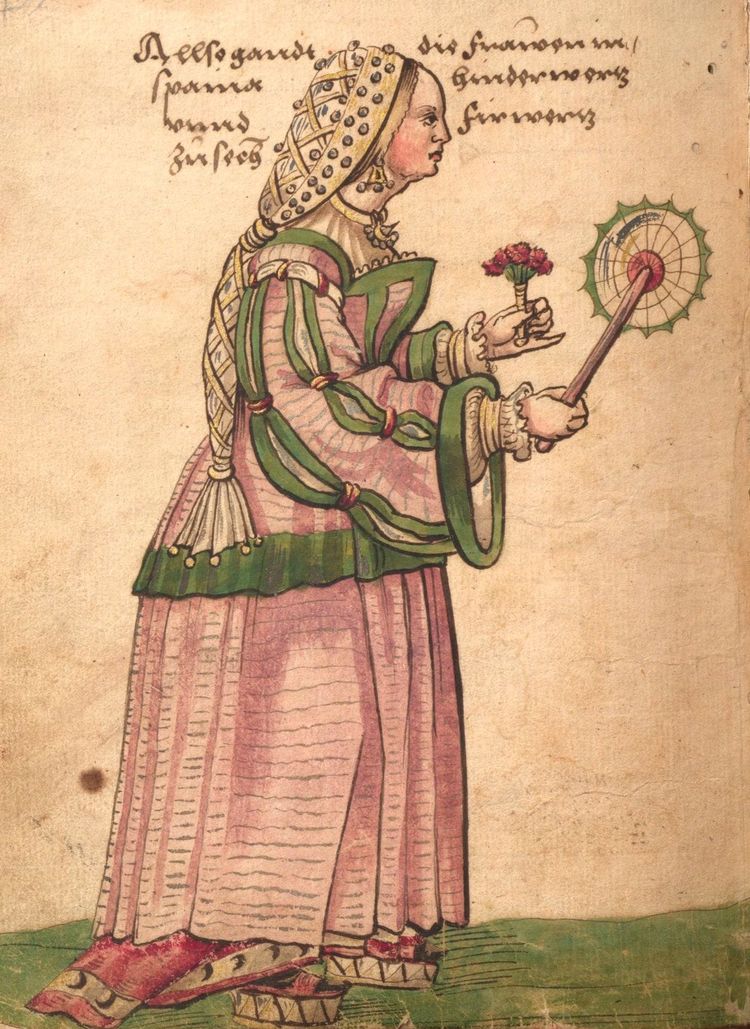 Allso gandt die frawen in
spania hinderwertz
vnnd firwertz
zů sech